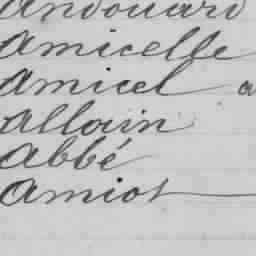 Andouard
Amicelle
Amicel a
Allouin
Abbé
Amiot